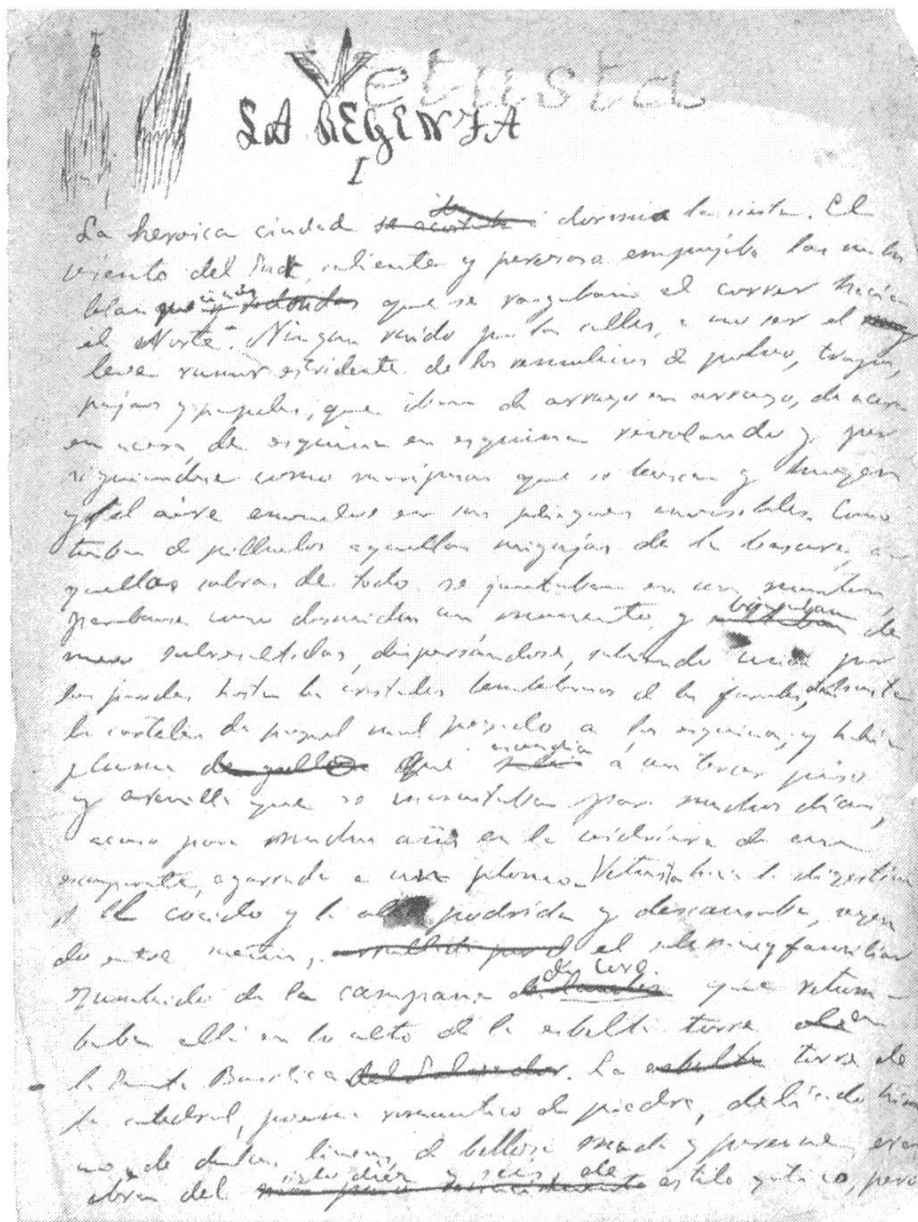 Vetusta
LA REGENTA
I
La heroica ciudad dormia la siesta. El
viento del Sur, caliente y perezoso empujaba las nubes
blanquecinas que se rasgaban al correr hácia
el Norte. Ningun ruido por las calles, a no ser el
leve rumor estridente de los remolinos de polvo, trapos,
pajas y papeles, que iban de arroyo en arroyo, de acera
en acera, de esquina en esquina revolando y per
siguiéndose como mariposas que se buscan y huyen
y el aire envuelve en sus pliegues invisibles. Como
turbas de pilluelos aquellas migajas de la basura, a
quellas sobras de todo se juntaban en un monton,
parabanse como dormidas un momento y brincaban de
nuevo sobresaltadas, dispersándose, subiendo unas por
las paredes hasta los cristales temblorosos de los faroles, otras hasta
los carteles de papel mal pegado a las esquinas, y habia
pluma que ascendia á un tercer piso
y arenilla que se incrustaba para muchos dias,
acaso para muchos años en la vidriera de un
escaparate, agarrada a un plomo. Vetusta hacia la digestion
del cocido y la olla podrida y descansaba, oyen
do entre sueños, el solo muy familiar
zumbido de la campana de coro. que retum-
baba allá en lo alto de la esbelta torre en
la Santa Basilica. La torre de
la catedral, poema romantico de piedra, delicado him
no, de dulces lineas de belleza muda y perenne, era
obra del siglo diez y seis de estilo gotico, pero